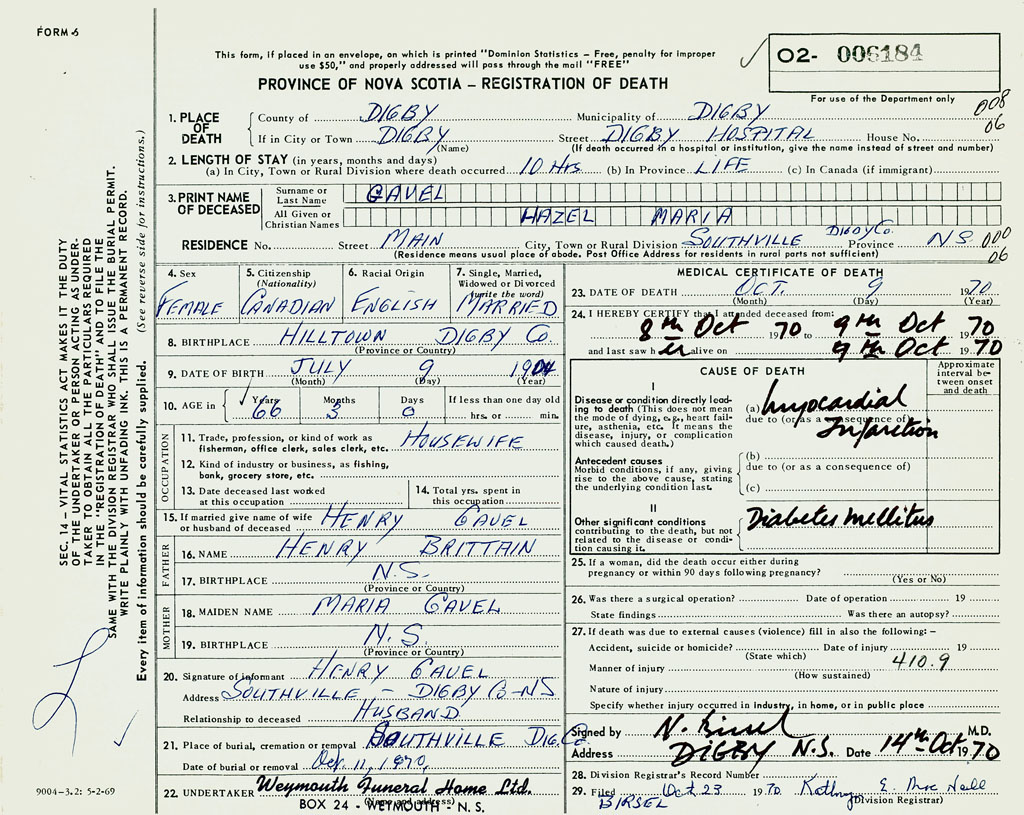 FORM 6
This form, if placed in an envelope, on which is printed "Dominion Statistics – Free, penalty for improper
use $50," and properly addressed will pass through the mail "FREE"
PROVINCE OF NOVA SCOTIA – REGISTRATION OF DEATH
O2- 006184
For use of the Department only
008
06
1. PLACE OF DEATH
County of DIGBY Municipality of DIGBY
If in City or Town DIGBY Street DIGBY HOSPITAL House No.
(Name) (If death occurred in a hospital or institution, give the name instead of street and number)
2. LENGTH OF STAY (in years, months and days)
(a) In City, Town or Rural Division where death occurred 10 Hrs (b) In Province LIFE (c) In Canada (if immigrant)
3. PRINT NAME OF DECEASED
Surname or Last Name GAVEL
All Given or Christian Names HAZEL MARIA
RESIDENCE No. Street MAIN City, Town or Rural Division SOUTHVILLE DIGBY Co. Province N S 000
06
(Residence means usual place of abode. Post Office Address for residents in rural parts not sufficient)
4. Sex FEMALE
5. Citizenship (Nationality) CANADIAN
6. Racial Origin ENGLISH
7. Single, Married, Widowed or Divorced (write the word) MARRIED
8. BIRTHPLACE HILLTOWN DIGBY Co.
(Province or Country)
9. DATE OF BIRTH JULY 9 1904
(Month) (Day) (Year)
10. AGE in Years 66 Months 3 Days 0 If less than one day old
hrs. or min.
OCCUPATION
11. Trade, profession, or kind of work as
fisherman, office clerk, sales clerk, etc. HOUSEWIFE
12. Kind of industry or business, as fishing,
bank, grocery store, etc.
13. Date deceased last worked
at this occupation
14. Total yrs. spent in
this occupation
15. If married give name of wife
or husband of deceased HENRY GAVEL
FATHER
16. NAME HENRY BRITTAIN
17. BIRTHPLACE N.S.
(Province or Country)
MOTHER
18. MAIDEN NAME MARIA GAVEL
19. BIRTHPLACE N.S.
(Province or Country)
20. Signature of informant HENRY GAVEL
Address SOUTHVILLE – DIGBY Co – NS
Relationship to deceased HUSBAND
21. Place of burial, cremation or removal SOUTHVILLE DIG. Co.
Date of burial or removal Oct. 11, 1970
22. UNDERTAKER Weymouth Funeral Home Ltd.
(Name and address)
BOX 24 - WEYMOUTH - N.S.
MEDICAL CERTIFICATE OF DEATH
23. DATE OF DEATH OCT. 9 1970
(Month) (Day) (Year)
24. I HEREBY CERTIFY that I attended deceased from:
8th Oct 1970 to 9th Oct 1970
and last saw her alive on 9th Oct 1970
CAUSE OF DEATH
Approximate interval between onset and death
I
Disease or condition directly leading to death (This does not mean
the mode of dying, e.g., heart failure, asthenia, etc. It means the
disease, injury, or complication
which caused death.)
(a) Myocardial
due to (or as a consequence of)
Infarction
Antecedent causes
Morbid conditions, if any, giving
rise to the above cause, stating
the underlying condition last.
(b)
due to (or as a consequence of)
(c)
II
Other significant conditions
contributing to the death, but not
related to the disease or condition causing it.
Diabetes mellitus
25. If a woman, did the death occur either during
pregnancy or within 90 days following pregnancy?
(Yes or No)
26. Was there a surgical operation? Date of operation 19
State findings Was there an autopsy?
27. If death was due to external causes (violence) fill in also the following: –
Accident, suicide or homicide? Date of injury 19
(State which) 410.9
Manner of injury
(How sustained)
Nature of injury
Specify whether injury occurred in industry, in home, or in public place
Signed by N. Birsel M.D.
Address DIGBY N.S. Date 14th Oct 1970
28. Division Registrar's Record Number
29. Filed Oct 23 1970
(Division Registrar)
BIRSEL
SEC. 14 – VITAL STATISTICS ACT MAKES IT THE DUTY
OF THE UNDERTAKER OR PERSON ACTING AS UNDER-
TAKER TO OBTAIN ALL THE PARTICULARS REQUIRED
IN THE "REGISTRATION OF DEATH" AND TO FILE THE
SAME WITH THE DIVISION REGISTRAR WHO SHALL ISSUE THE BURIAL PERMIT.
WRITE PLAINLY WITH UNFADING INK. THIS IS A PERMANENT RECORD.
Every item of information should be carefully supplied. (See reverse side for instructions.)
9004-3.2: 5-2-69